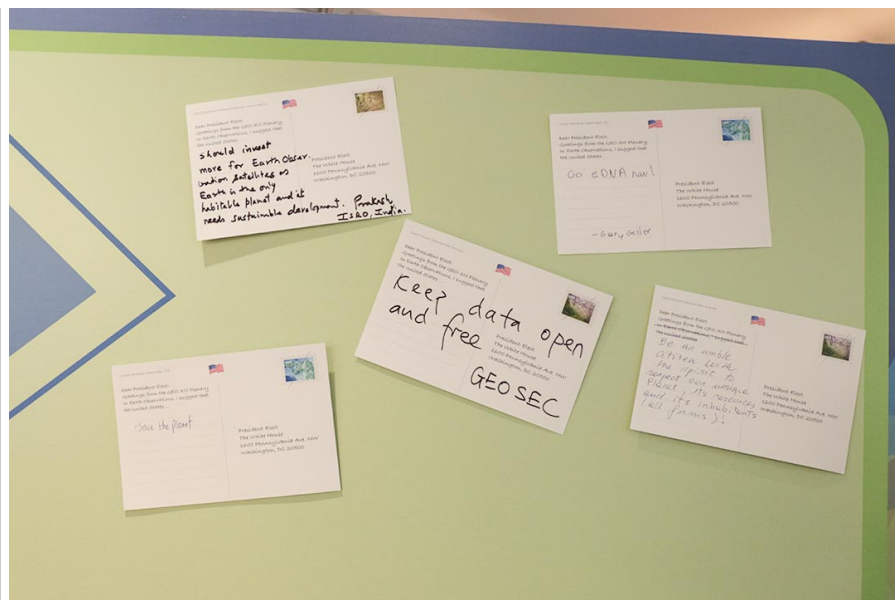 Dear President Elect:
Greetings from the GEO-XIII Plenary
in Earth Observations, I suggest that
the United States ...
should invest
more for Earth Obser-
vation satellites as
Earth is the only
habitable planet and it
needs sustainable development. Prakash,
ISRO, India.
President Elect
The White House
1600 Pennsylvania Ave. NW
Washington, DC 20500
Dear President Elect:
Greetings from the GEO-XIII Plenary
in Earth Observations, I suggest that
the United States ...
Go eDNA now!
- Gary Geller
President Elect
The White House
1600 Pennsylvania Ave. NW
Washington, DC 20500
Dear President Elect:
Greetings from the GEO-XIII Plenary
in Earth Observations, I suggest that
the United States ...
Keep data open
and free
GEOSEC
President Elect
The White House
1600 Pennsylvania Ave. NW
Washington, DC 20500
Dear President Elect:
Greetings from the GEO-XIII Plenary
in Earth Observations, I suggest that
the United States
Be an humble
citizen with
the spirit to
respect our unique
Planet its resources
and its inhabitants
(all forms)!
President Elect
The White House
1600 Pennsylvania Ave. NW
Washington, DC 20500
Dear President Elect:
Greetings from the GEO-XIII Plenary
in Earth Observations, I suggest that
the United States ...
Save the planet.
President Elect
The White House
1600 Pennsylvania Ave. NW
Washington, DC 20500